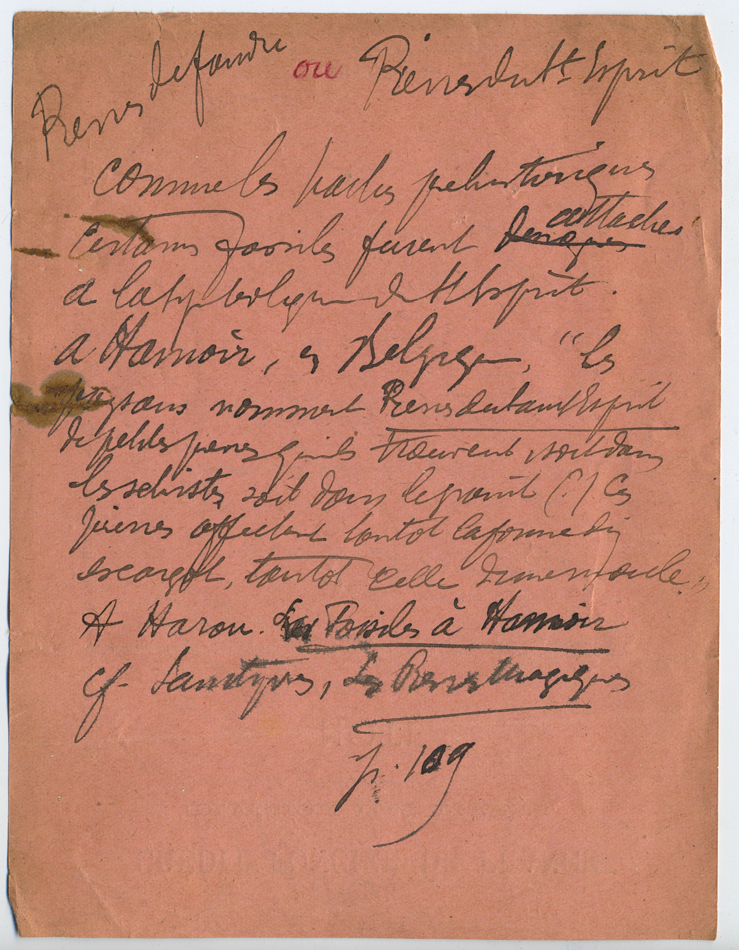 Pierres de foudre ou Pierres du St Esprit
comme les haches préhistoriques
certains fossiles furent attachés
à la symbolique du St Esprit.
à Hamoir, en Belgique, "les
paysans nomment Pierres du Saint Esprit
de petites pierres qu'ils trouvent, soit dans
les schistes, soit dans le granit (?) Ces
pierres affectent tantôt la forme d'un
escargot, tantôt celle d'une moule."
A Harou. Les Fossiles à Hamoir
cf. Saintyves, Les Pierres Magiques
p. 109